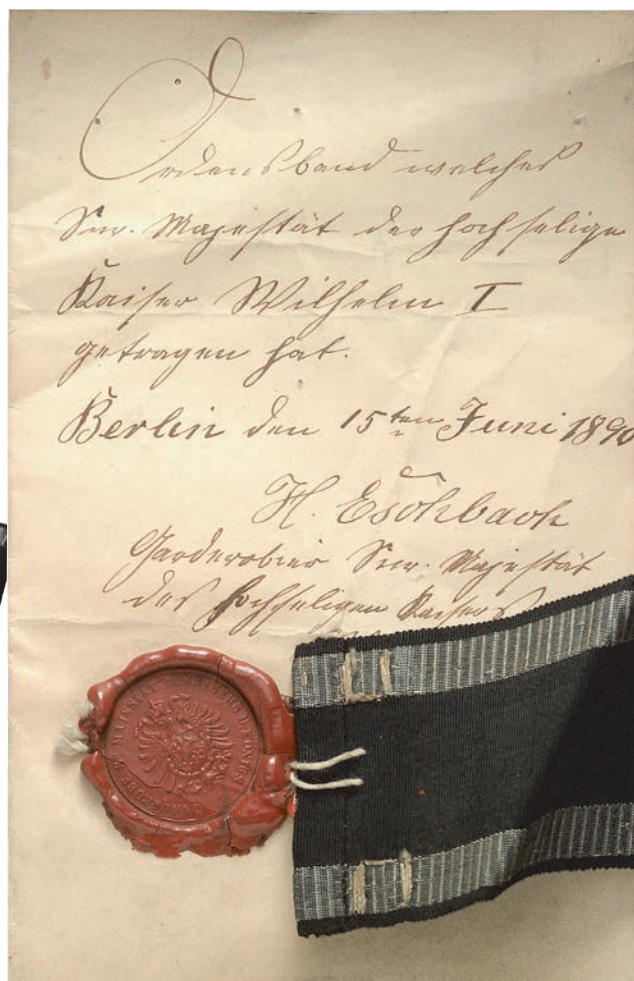 Ordensband welches
Snr. Majestät der hochselige
Kaiser Wilhelm I
getragen hat.
Berlin den 15ten Juni 1890
H. Eschbach
Garderobier Snr. Majestät
des hochseligen Kaisers